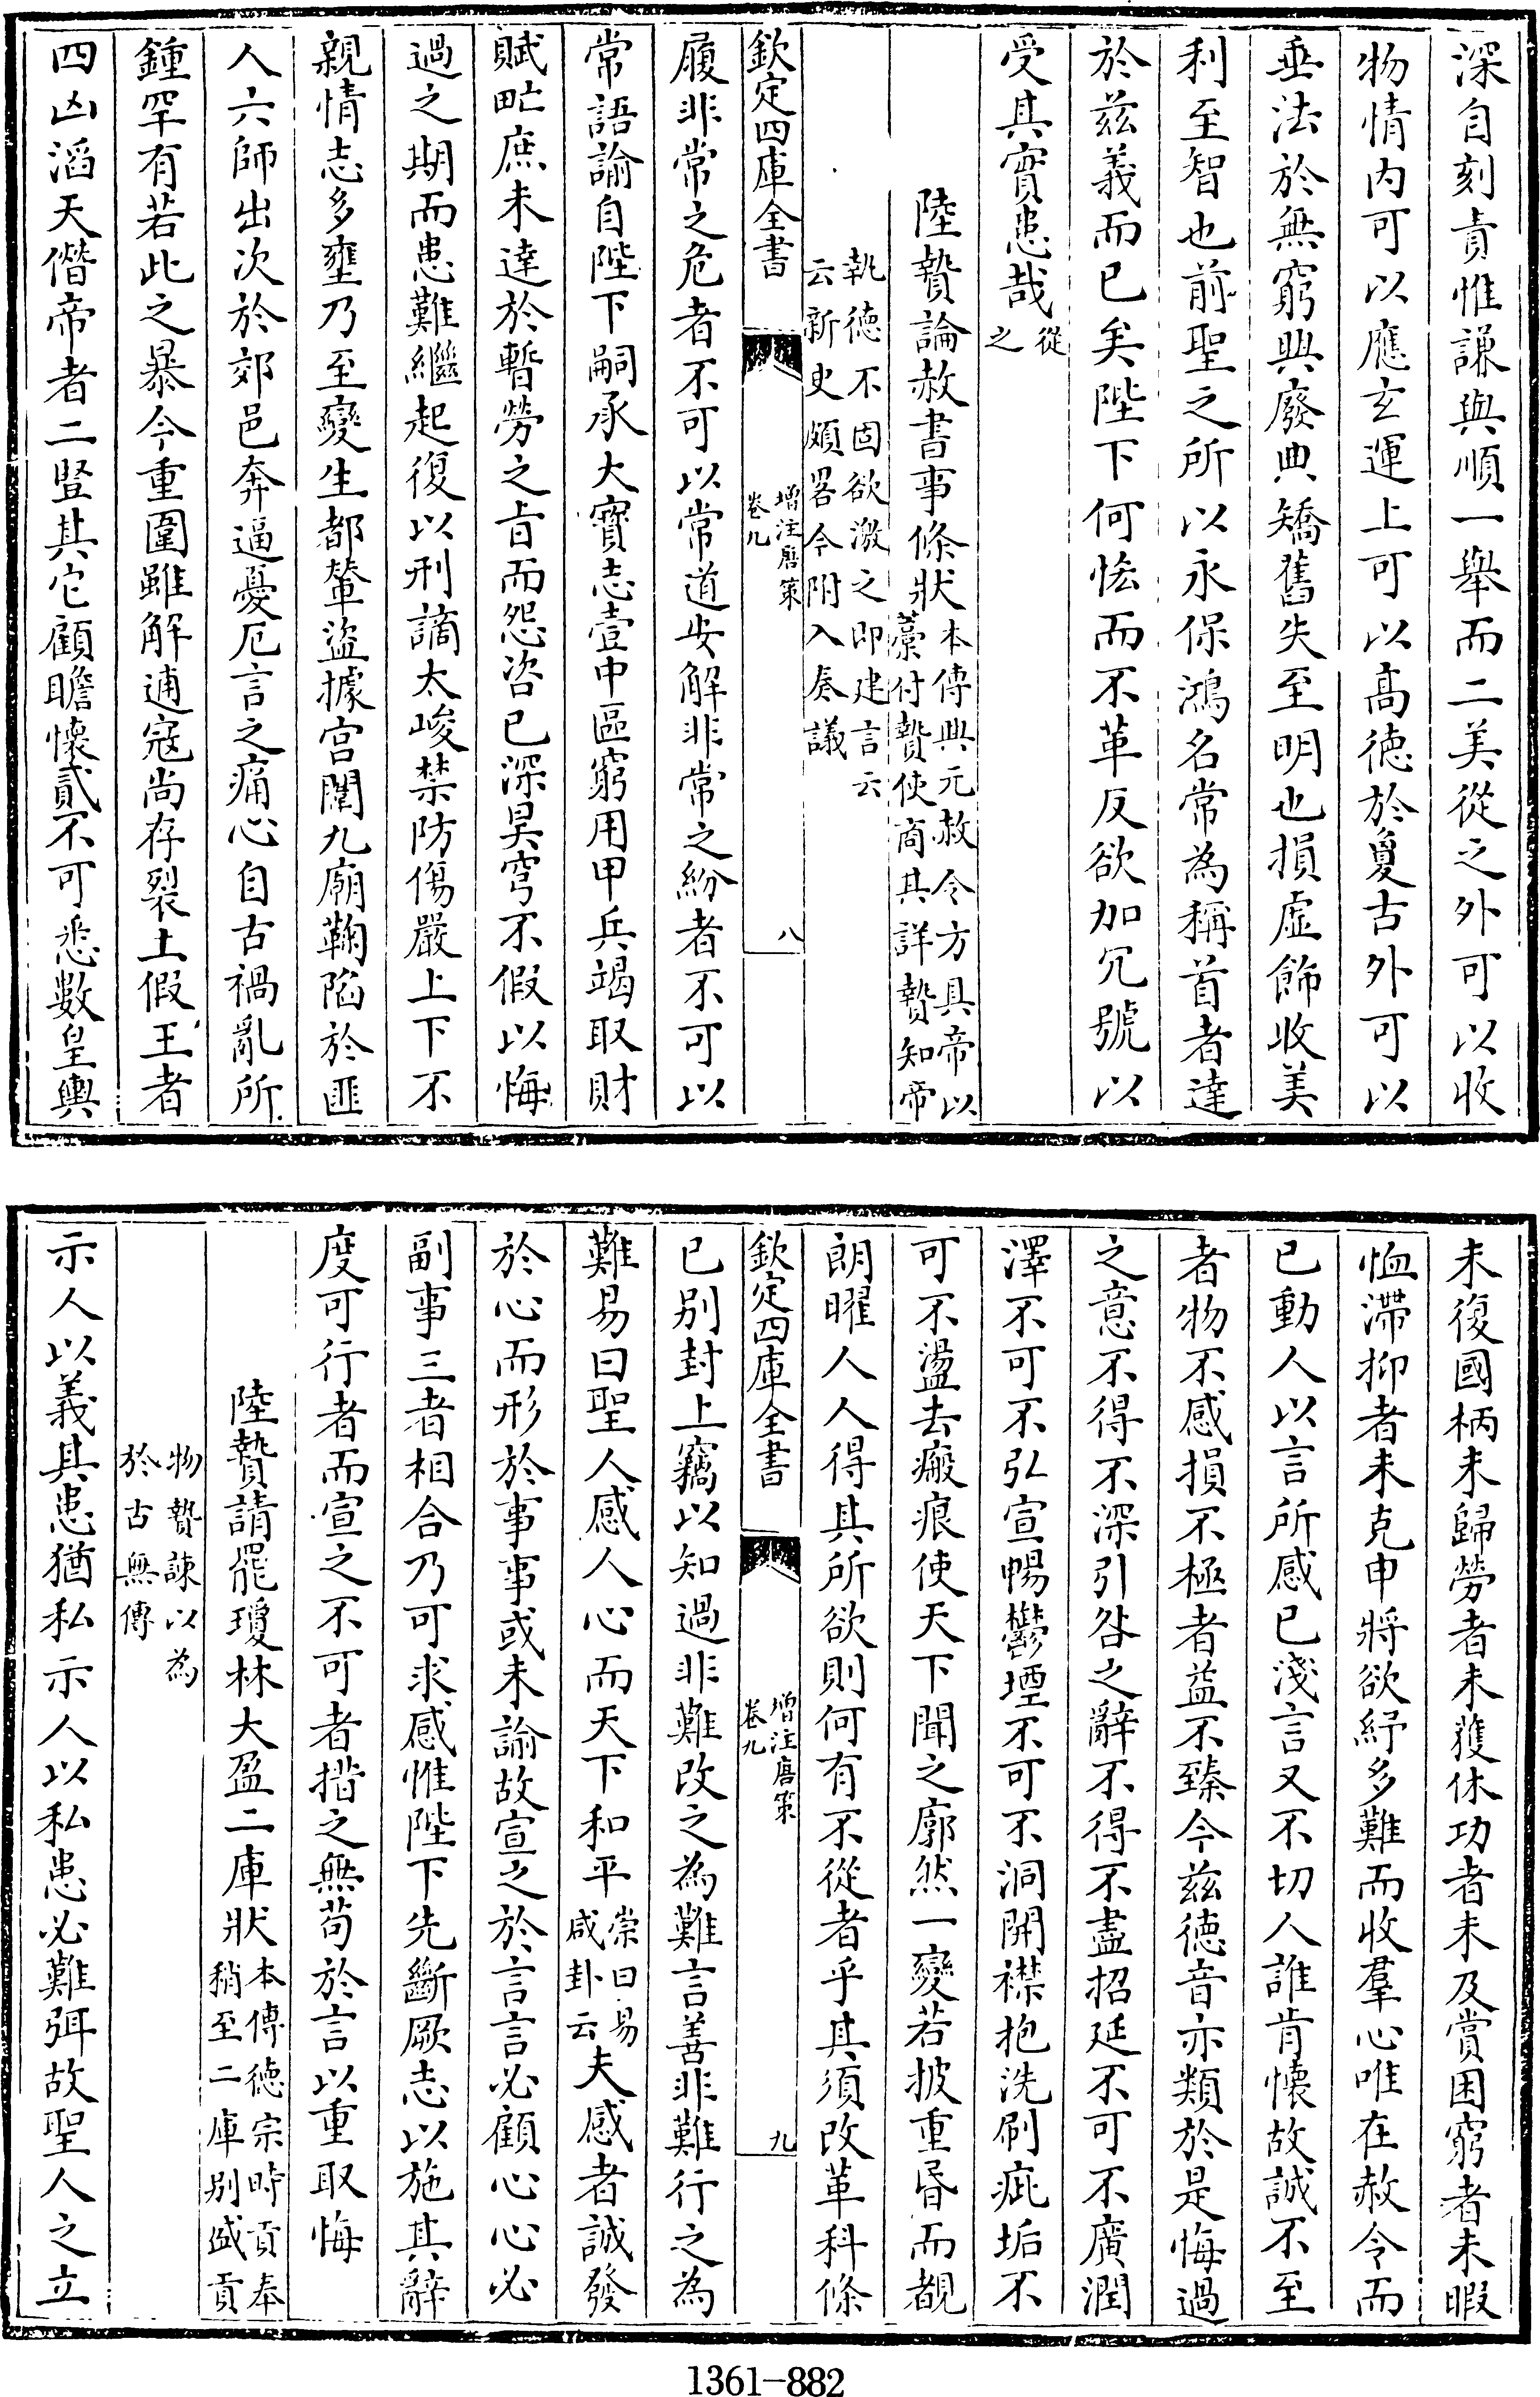 深自刻責惟謙與順一舉而二美從之外可以收
物情内可以應玄運上可以髙徳於夐古外可以
垂法於無窮興廢典矯舊失至明也損虚飾收美
利至智也前聖之所以永保鴻名常為稱首者達
於兹義而已矣陛下何恡而不革反欲加冗號以
受其實患哉從之
陸贄論赦書事條状本傳興元赦令方具帝以藁付贄使商其詳贄知帝
執徳不固欲激之即建言云云新史頗畧今附入奏議
欽定四庫全書
增注唐策
卷九
八
履非常之危者不可以常道安解非常之紛者不可以
常語諭自陛下嗣承大寳志壹中區窮用甲兵竭取財
賦甿庶未達於暫勞之旨而怨咨已深昊穹不假以悔
過之期而患難繼起復以刑謫太峻禁防傷嚴上下不
親情志多壅乃至變生都輦盜據宫闈九廟鞠䧟於匪
人六師出次於郊邑奔逼憂厄言之痛心自古禍亂所
鍾罕有若此之暴今重圍雖解逋寇尚存裂土假王者
四凶滔天僭帝者二豎其它顧瞻懷貳不可悉數皇輿
未復國柄未歸勞者未獲休功者未及賞困窮者未暇
恤滯抑者未克申將欲紓多難而收羣心唯在赦令而
已動人以言所感已淺言又不切人誰肯懷故誠不至
者物不感損不極者益不臻今兹徳音亦類於是悔過
之意不得不深引咎之辭不得不盡招延不可不廣潤
澤不可不弘宣暢鬱堙不可不洞開襟抱洗刷疵垢不
可不盪去瘢痕使天下聞之廓然一變若披重昏而覩
朗曜人人得其所欲則何有不從者乎其須改革科條
欽定四庫全書
增注唐策
卷九
九
已别封上竊以知過非難改之為難言善非難行之為
難易曰聖人感人心而天下和平崇曰易咸卦云夫感者誠發
於心而形於事事或未諭故宣之於言言必顧心心必
副事三者相合乃可求感惟陛下先斷厥志以施其辭
度可行者而宣之不可者措之無苟於言以重取悔
陸贄請罷瓊林大盈二庫狀本傳徳宗時貢奉稍至二庫别盛貢
物贄諫以為於古無傳
示人以義其患猶私示人以私患必難弭故聖人之立
1361-882